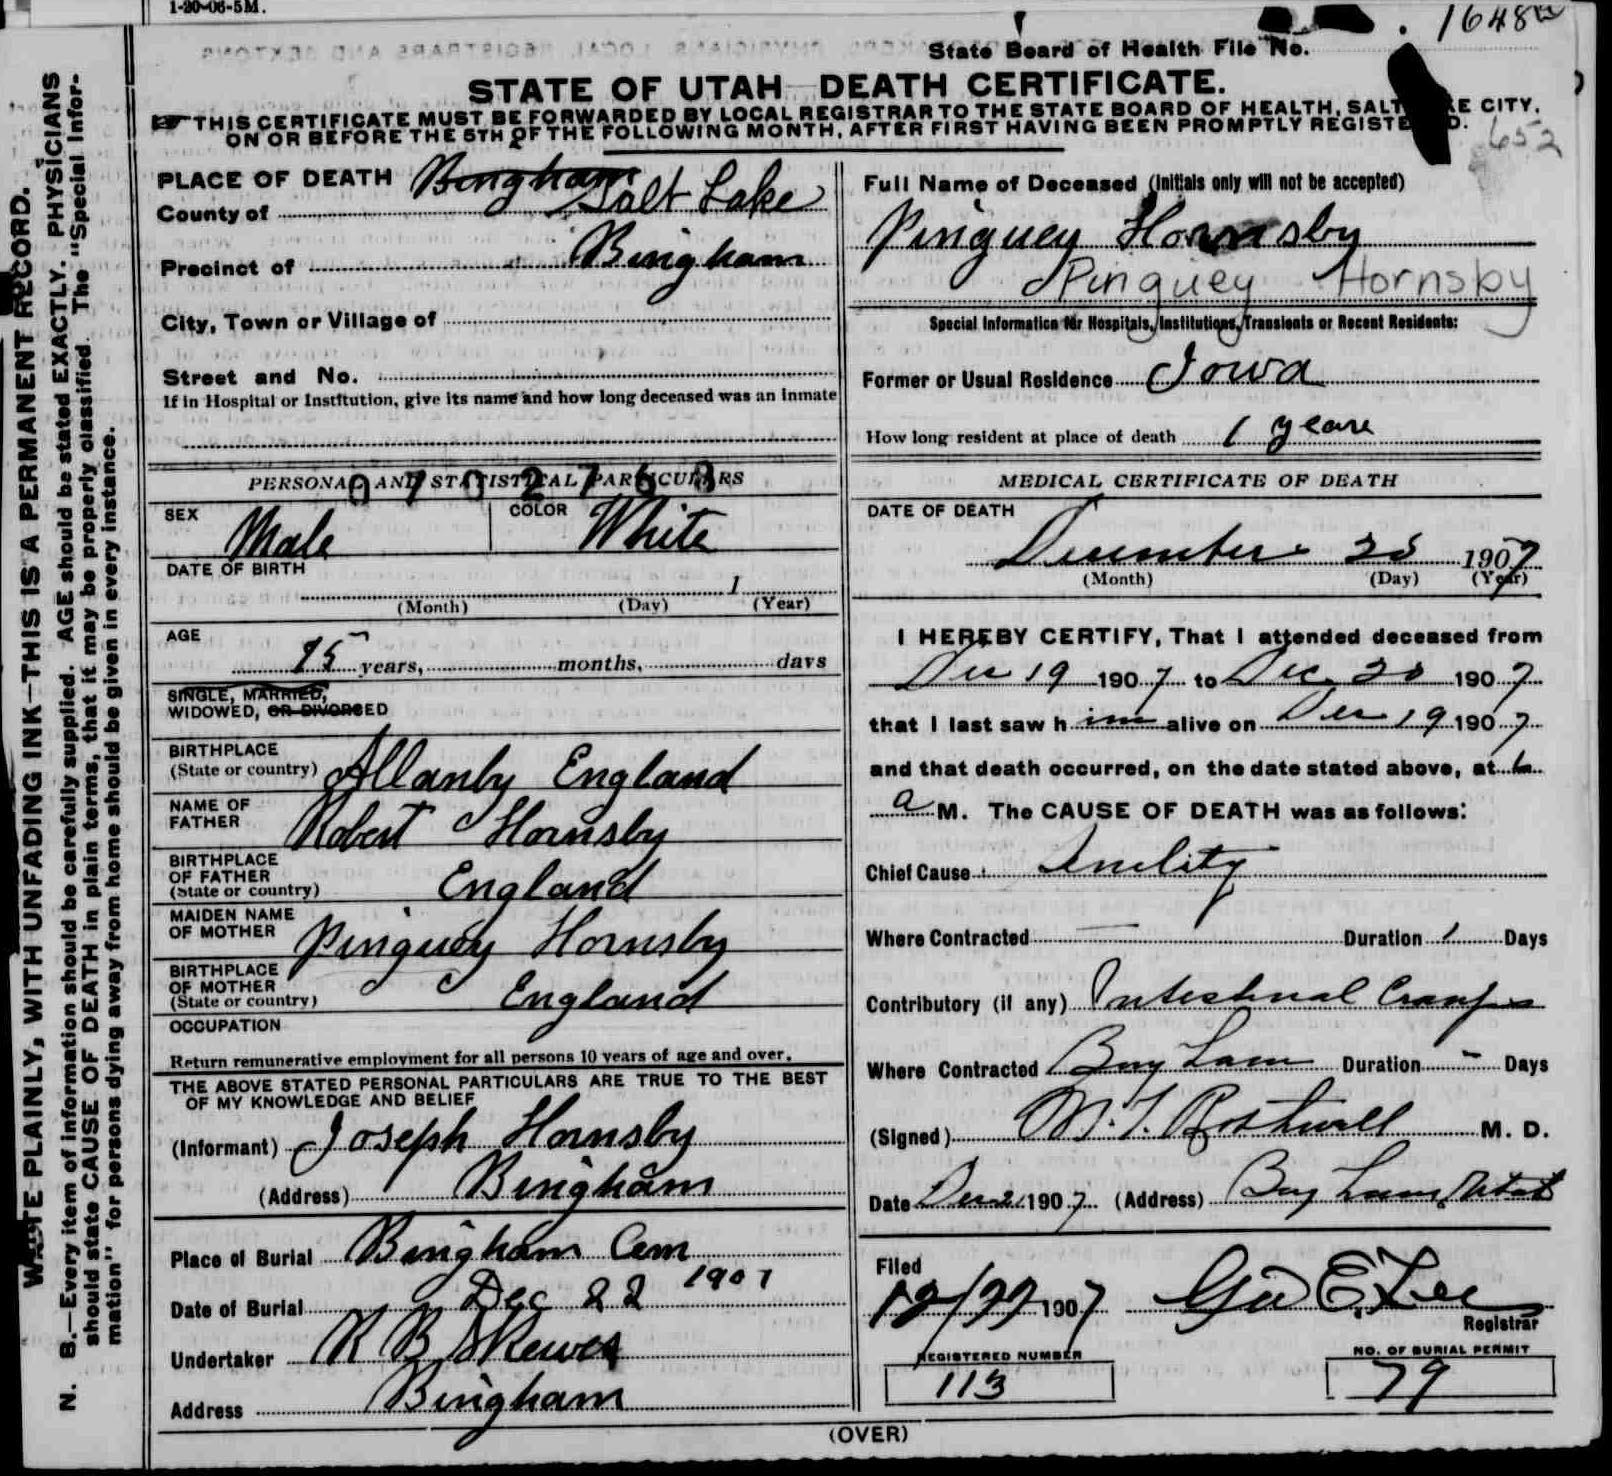 1-20-06-5M.
1648
State Board of Health File No.
STATE OF UTAH—DEATH CERTIFICATE.
THIS CERTIFICATE MUST BE FORWARDED BY LOCAL REGISTRAR TO THE STATE BOARD OF HEALTH, SALT KE CITY,
ON OR BEFORE THE 5TH OF THE FOLLOWING MONTH, AFTER FIRST HAVING BEEN PROMPTLY REGISTE D.
652
WRITE PLAINLY, WITH UNFADING INK—THIS IS A PERMANENT RECORD.
N. B.—Every item of information should be carefully supplied. AGE should be stated EXACTLY. PHYSICIANS
should state CAUSE OF DEATH in plain terms, that it may be properly classified. The "Special Infor-
mation" for persons dying away from home should be given in every instance.
PLACE OF DEATH Bingham
County of Salt Lake
Precinct of Bingham
City, Town or Village of
Street and No.
If in Hospital or Institution, give its name and how long deceased was an inmate
PERSONAL AND STATISTICAL PARTICULARS
0 7 0 2 7 6 8
SEX Male COLOR White
DATE OF BIRTH
1
(Month) (Day) (Year)
AGE 75 years, months, days
SINGLE, MARRIED,
WIDOWED, OR DIVORCED
BIRTHPLACE
(State or country) Allanby England
NAME OF
FATHER Robert Hornsby
BIRTHPLACE
OF FATHER
(State or country) England
MAIDEN NAME
OF MOTHER Pinguey Hornsby
BIRTHPLACE
OF MOTHER
(State or country) England
OCCUPATION
Return remunerative employment for all persons 10 years of age and over.
THE ABOVE STATED PERSONAL PARTICULARS ARE TRUE TO THE BEST
OF MY KNOWLEDGE AND BELIEF
(Informant) Joseph Hornsby
(Address) Bingham
Place of Burial Bingham Cem
Date of Burial Dec 22 1907
Undertaker R B Skewes
Address Bingham
Full Name of Deceased (Initials only will not be accepted)
Pinguey Hornsby
Pinguey Hornsby
Special Information for Hospitals, Institutions, Transients or Recent Residents:
Former or Usual Residence Iowa
How long resident at place of death 1 year
MEDICAL CERTIFICATE OF DEATH
DATE OF DEATH
December 20 1907
(Month) (Day) (Year)
I HEREBY CERTIFY, That I attended deceased from
Dec 19 1907 to Dec 20 1907
that I last saw him alive on Dec 19 1907
and that death occurred, on the date stated above, at 6
a M. The CAUSE OF DEATH was as follows:
Chief Cause Senility
Where Contracted — Duration 1 Days
Contributory (if any) Intestinal Cramps
Where Contracted Duration - Days
(Signed) M. D.
Date Dec 21 1907 (Address) Utah
Filed
12/22 1907 Geo E. Lee
Registrar
REGISTERED NUMBER
113
NO. OF BURIAL PERMIT
79
(OVER)